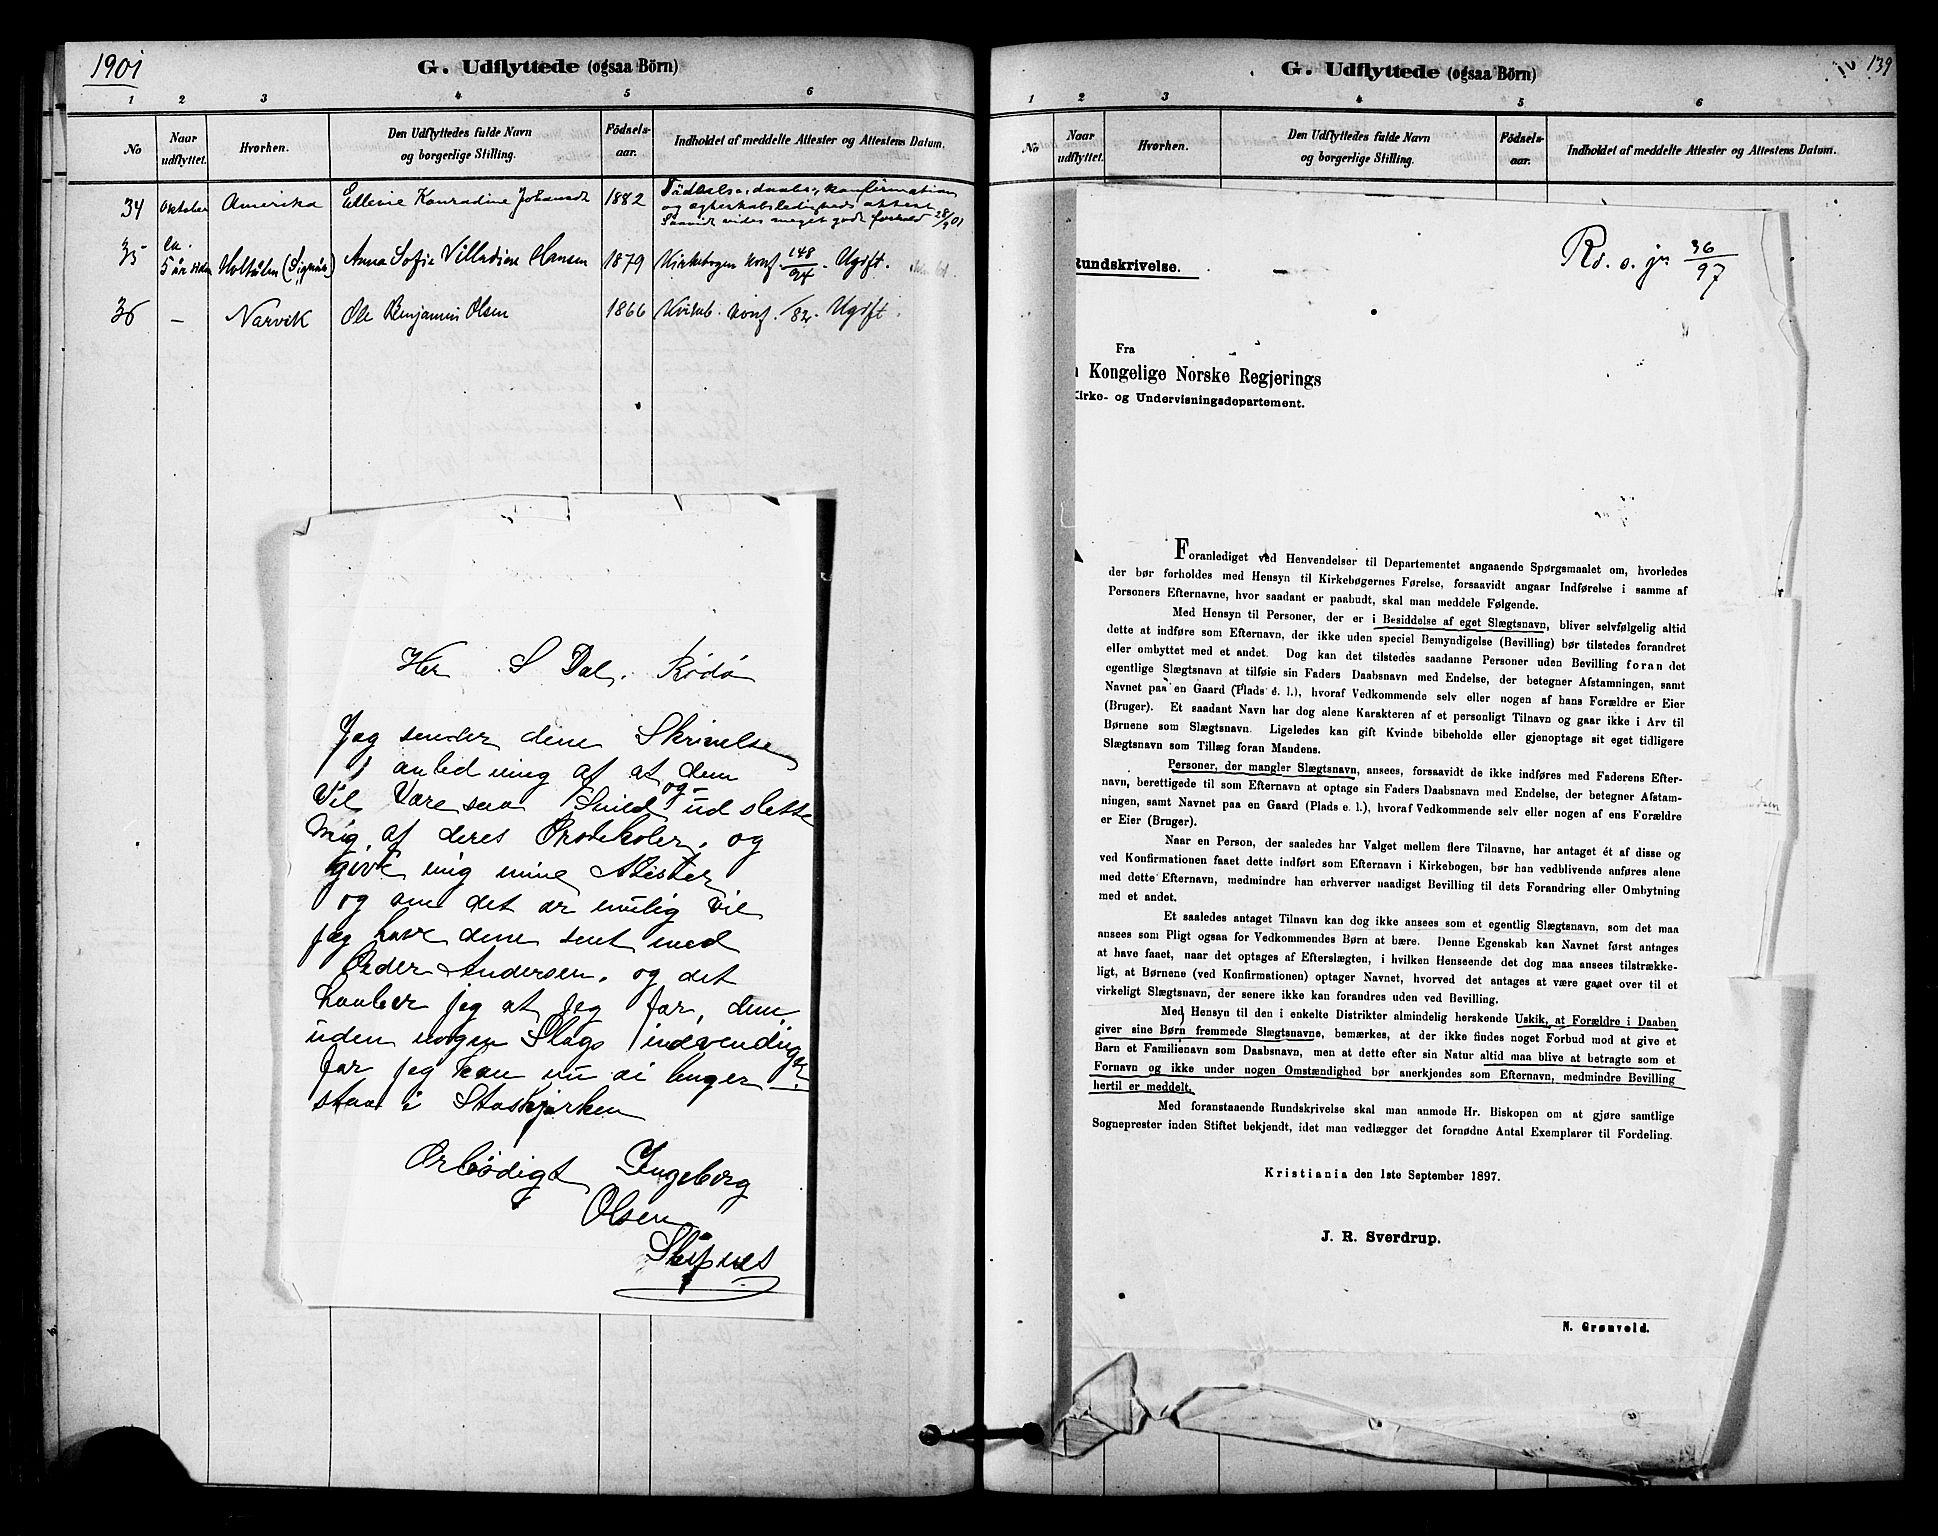 1901
G. Udflyttede (ogsaa Börn)
1 2 3 4 5 6
No
Naar udflyttet.
Hvorhen.
Den Udflyttedes fulde Navn og borgerlige Stilling.
Födsels-aar.
Indholdet af meddelte Attester og Attestens Datum.
34 Oktober Amerika Elleie Konradine Johansdt 1882 Fødsels-, daabs-, konfirmation
og ægteskabsledigheds attest
Saavidt vides meget godt forhold 28/9 01
35 ca. 5 år siden Holtålen (Signås) Anna Sofie Villadine Hansen 1879 Kirkebogen konf. 148/94. Ugift.
36 — Narvik Ole Benjamin Olsen 1866 konf. /82. Ugift.
Her S Dal. Rödö
Jag sender dene Skrivelse
i anledning af at dem
Vil Være saa Snild og ud slette
Mig af deres Protokoler, og
give mig mine Atester
og om det er mulig vil
jag have dem sent med
Peder Andersen, og det
haaber jeg at jeg far, dem,
uden nogen Slags indvendinger
far jeg kan nu ei lenger
staa i Staskjørken
Ærbödigt Ingeberg
Olsen
G. Udflyttede (ogsaa Börn)
139
1 2 3 4 5 6
No
Naar udflyttet.
Hvorhen.
Den Udflyttedes fulde Navn og borgerlige Stilling.
Födsels-aar.
Indholdet af meddelte Attester og Attestens Datum.
Rundskrivelse.
Rd. o. jn 36/97
Fra
Kongelige Norske Regjerings
Kirke- og Undervisningsdepartement.
Foranlediget ved Henvendelser til Departementet angaaende Spørgsmaalet om, hvorledes
der bør forholdes med Hensyn til Kirkebøgernes Førelse, forsaavidt angaar Indførelse i samme af
Personers Efternavne, hvor saadant er paabudt, skal man meddele Følgende.
Med Hensyn til Personer, der er i Besiddelse af eget Slægtsnavn, bliver selvfølgelig altid
dette at indføre som Efternavn, der ikke uden speciel Bemyndigelse (Bevilling) bør tilstedes forandret
eller ombyttet med et andet. Dog kan det tilstedes saadanne Personer uden Bevilling foran det
egentlige Slægtsnavn at tilføie sin Faders Daabsnavn med Endelse, der betegner Afstamningen, samt
Navnet paa en Gaard (Plads e. l.), hvoraf Vedkommende selv eller nogen af hans Forældre er Eier
(Bruger). Et saadant Navn har dog alene Karakteren af et personligt Tilnavn og gaar ikke i Arv til
Børnene som Slægtsnavn. Ligeledes kan gift Kvinde bibeholde eller gjenoptage sit eget tidligere
Slægtsnavn som Tillæg foran Mandens.
Personer, der mangler Slægtsnavn, ansees, forsaavidt de ikke indføres med Faderens Efter-
navn, berettigede til som Efternavn at optage sin Faders Daabsnavn med Endelse, der betegner Afstam-
ningen, samt Navnet paa en Gaard (Plads e. l.), hvoraf Vedkommende selv eller nogen af ens Forældre
er Eier (Bruger).
Naar en Person, der saaledes har Valget mellem flere Tilnavne, har antaget ét af disse og
ved Konfirmationen faaet dette indført som Efternavn i Kirkebogen, bør han vedblivende anføres alene
med dette Efternavn, medmindre han erhverver naadigst Bevilling til dets Forandring eller Ombytning
med et andet.
Et saaledes antaget Tilnavn kan dog ikke ansees som et egentlig Slægtsnavn, som det maa
ansees som Pligt ogsaa for Vedkommendes Børn at bære. Denne Egenskab kan Navnet først antages
at have faaet, naar det optages af Efterslægten, i hvilken Henseende det dog maa ansees tilstrække-
ligt, at Børnene (ved Konfirmationen) optager Navnet, hvorved det antages at være gaaet over til et
virkeligt Slægtsnavn, der senere ikke kan forandres uden ved Bevilling.
Med Hensyn til den i enkelte Distrikter almindelig herskende Uskik, at Forældre i Daaben
giver sine Børn fremmede Slægtsnavne, bemærkes, at der ikke findes noget Forbud mod at give et
Barn et Familienavn som Daabsnavn, men at dette efter sin Natur altid maa blive at betragte som et
Fornavn og ikke under nogen Omstændighed bør anerkjendes som Efternavn, medmindre Bevilling
hertil er meddelt.
Med foranstaaende Rundskrivelse skal man anmode Hr. Biskopen om at gjøre samtlige
Sogneprester inden Stiftet bekjendt, idet man vedlægger det fornødne Antal Exemplarer til Fordeling.
Kristiania den 1ste September 1897.
J. R. Sverdrup.
N. Grønvold.